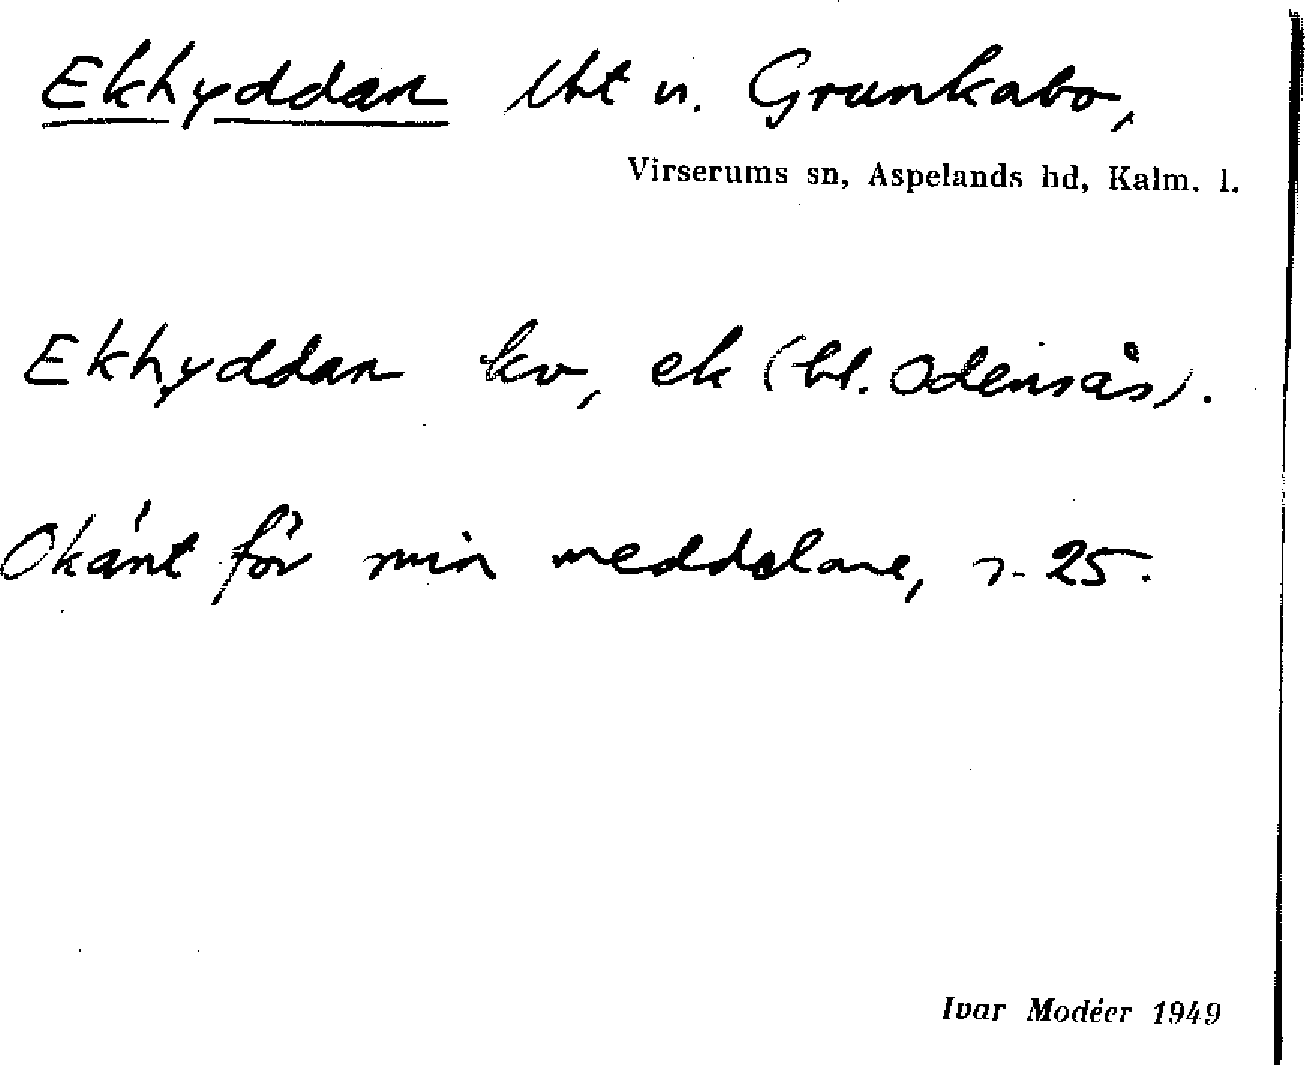 Ekhyddan lht u. Grunkabo,
Virserums sn, Aspelands hd, Kalm. l.
Ekhyddan kv, ek (bl. Odensås).
Okänt för min meddelare, r. 25.
Ivar Modéer 1949